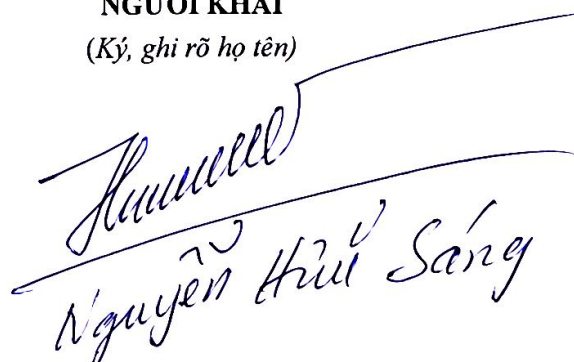 NGƯỜI KHAI
(Ký, ghi rõ họ tên)
Nguyễn Hữu Sáng